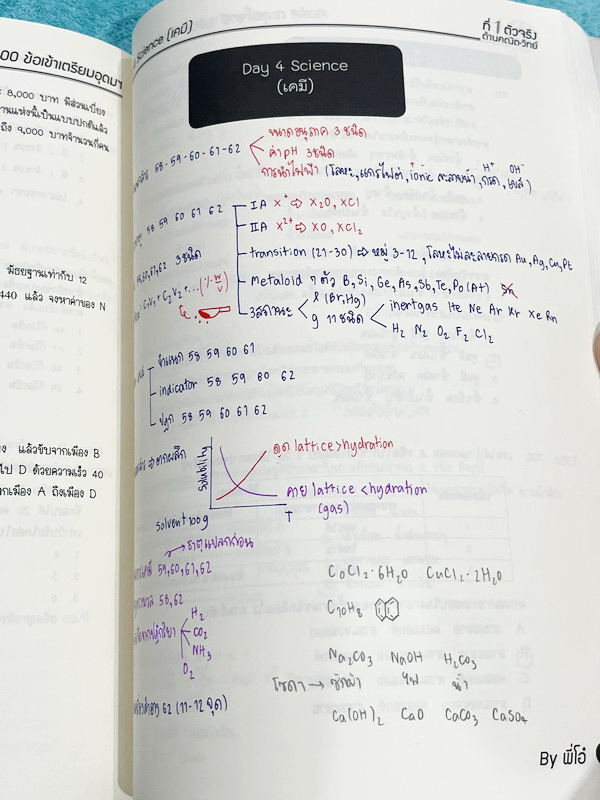 00 ข้อเข้าเตรียมอุดมฯ
8,000 บาท มีส่วนเบี่ยง
านแห่งนี้เป็นแบบปกติแล้ว
ถึง 9,000 บาทจำนวนกี่คน
มีธยฐานเท่ากับ 12
440 แล้ว จงหาค่าของ N
แล้วขับจากเมือง B
ไป D ด้วยความเร็ว 40
กเมือง A ถึงเมือง D
Science (เคมี)
ที่ 1 ตัวจริง
ด้านคณิต-วิทย์
Day 4 Science
(เคมี)
58-59-60-61-62
ขนาดอนุภาค 3 ชนิด
ค่า pH 3 ชนิด
การนำไฟฟ้า (โลหะ, แกรไฟต์, ionic ละลายน้ำ, กรด, เบส)
H⁺ OH⁻
58 59 60 61 62
IA X⁺ ⇨ X₂O, XCl
IIA X²⁺ ⇨ XO, XCl₂
transition (21-30) ⇨ หมู่ 3-12, โลหะไม่ละลายกรด Au, Ag, Cu, Pt
60,61,62 3ชนิด
C₁V₁ + C₂V₂ + ... (% w/v)
Metaloid 7 ตัว B, Si, Ge, As, Sb, Te, Po (At)
3สถานะ
l (Br, Hg)
g 11 ชนิด
inertgas He Ne Ar Kr Xe Rn
H₂ N₂ O₂ F₂ Cl₂
จำแนก 58 59 60 61
indicator 58 59 60 62
ปฏก 58 59 60 61 62
ตกผลึก
Solubility
ดูด lattice > hydration
คาย lattice < hydration
(gas)
T
solvent 100g
ธาตุแปลกก่อน
59,60,61,62
CoCl₂·6H₂O CuCl₂·2H₂O
58,62
H₂
CO₂
NH₃
O₂
C₁₀H₈
Na₂CO₃ NaOH H₂CO₃
โซดา → ซักผ้า ไฟ น้ำ
62 (11-12 จุด)
Ca(OH)₂ CaO CaCO₃ CaSO₄
By พี่โอ๋